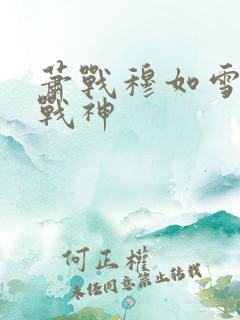 蕭戰穆如雪
戰神
何正權
未经同意禁止转载